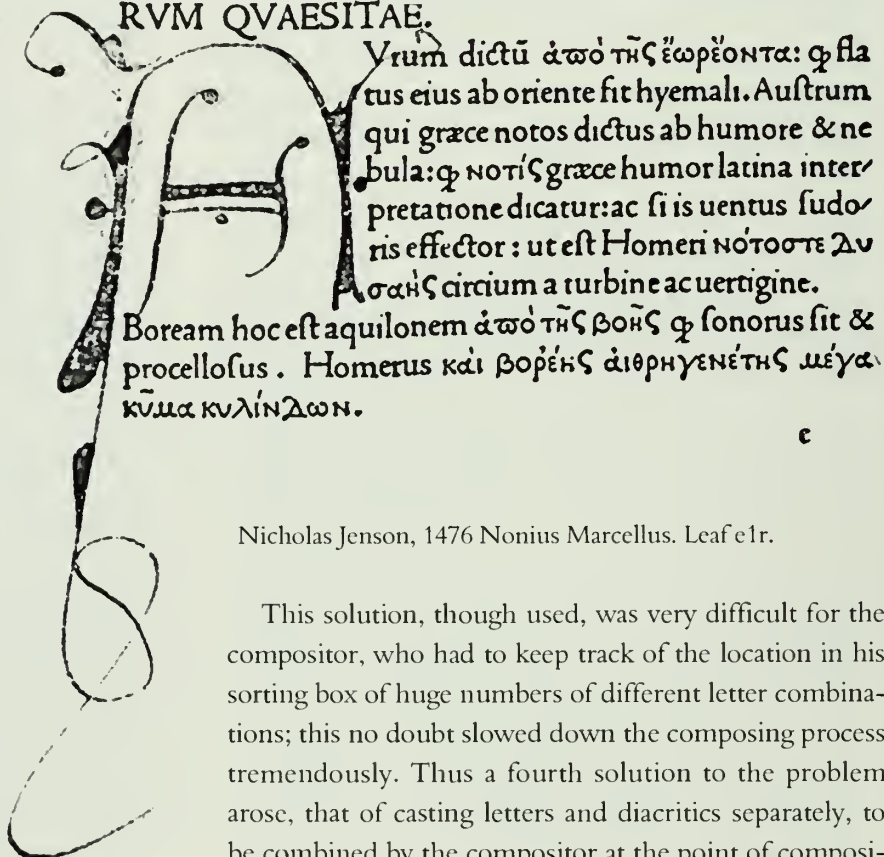 RVM QVAESITAE.
Vrum dictū ἀπὸ τῆς ἕωρέοντα: ꝙ fla
tus eius ab oriente fit hyemalı. Auſtrum
qui græce notos dıctus ab humore & ne
bula: ꝙ νοτίς græce humor latina inter⸗
pretatione dıcatur: ac ſi is uentus ſudo⸗
ris effector : ut eſt Homeri νότοστε λυ
σαὴς circium a turbine ac uertigine.
Boream hoc eſt aquilonem ἀπὸ τῆς βοῆς ꝙ ſonorus ſit &
proceſſoſus . Homerus καὶ βορέης ἀιθρηγενέτης μέγα
κῦμα κυλίνδων.
c
Nicholas Jenson, 1476 Nonius Marcellus. Leaf e1r.
This solution, though used, was very difficult for the
compositor, who had to keep track of the location in his
sorting box of huge numbers of different letter combina-
tions; this no doubt slowed down the composing process
tremendously. Thus a fourth solution to the problem
arose, that of casting letters and diacritics separately, to
be combined by the compositor at the point of composi-